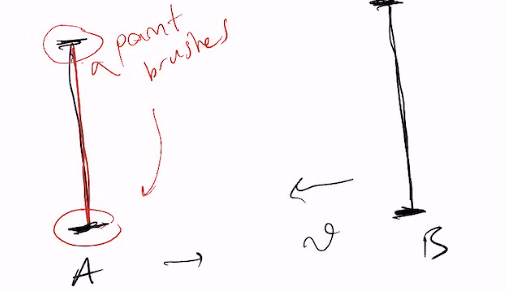 a paint
brushes
A
v
B